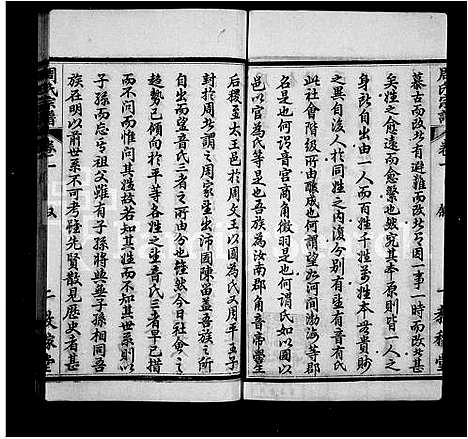 慕古而改者有避難而改者有因一事一時而改者甚
矣姓之愈遠而愈繫也然究其本原則皆一人之
身所自出由一人而百姓千姓萬姓本無貴賤
之異自法人于於同姓之內復分別有望有音有氏
此社會階級所由釀成也何謂望如河間渤海等郡
名是也何謂音宮商角徵羽是也何謂氏如以國以
邑以官以字等是也吾族為汝南郡角音帝嚳生
后稷至太王邑於周文王以國為氏又周平王子
封於周者之周家世出沛國陳留蓋吾族之所
自出而望音氏三者之所由分也雖然今日社會之
趨勢已傾向於平等各姓之望音氏可也已採指
而不問而問其姓故若知其姓而不知其世系則以
子孫而忘乎祖父雖有子孫將與無子孫相同吾
族在明以前世系不可考雖先賢散見歷史者甚
周氏宗譜
卷一
敦稼堂
周氏宗譜
卷一
敦稼堂